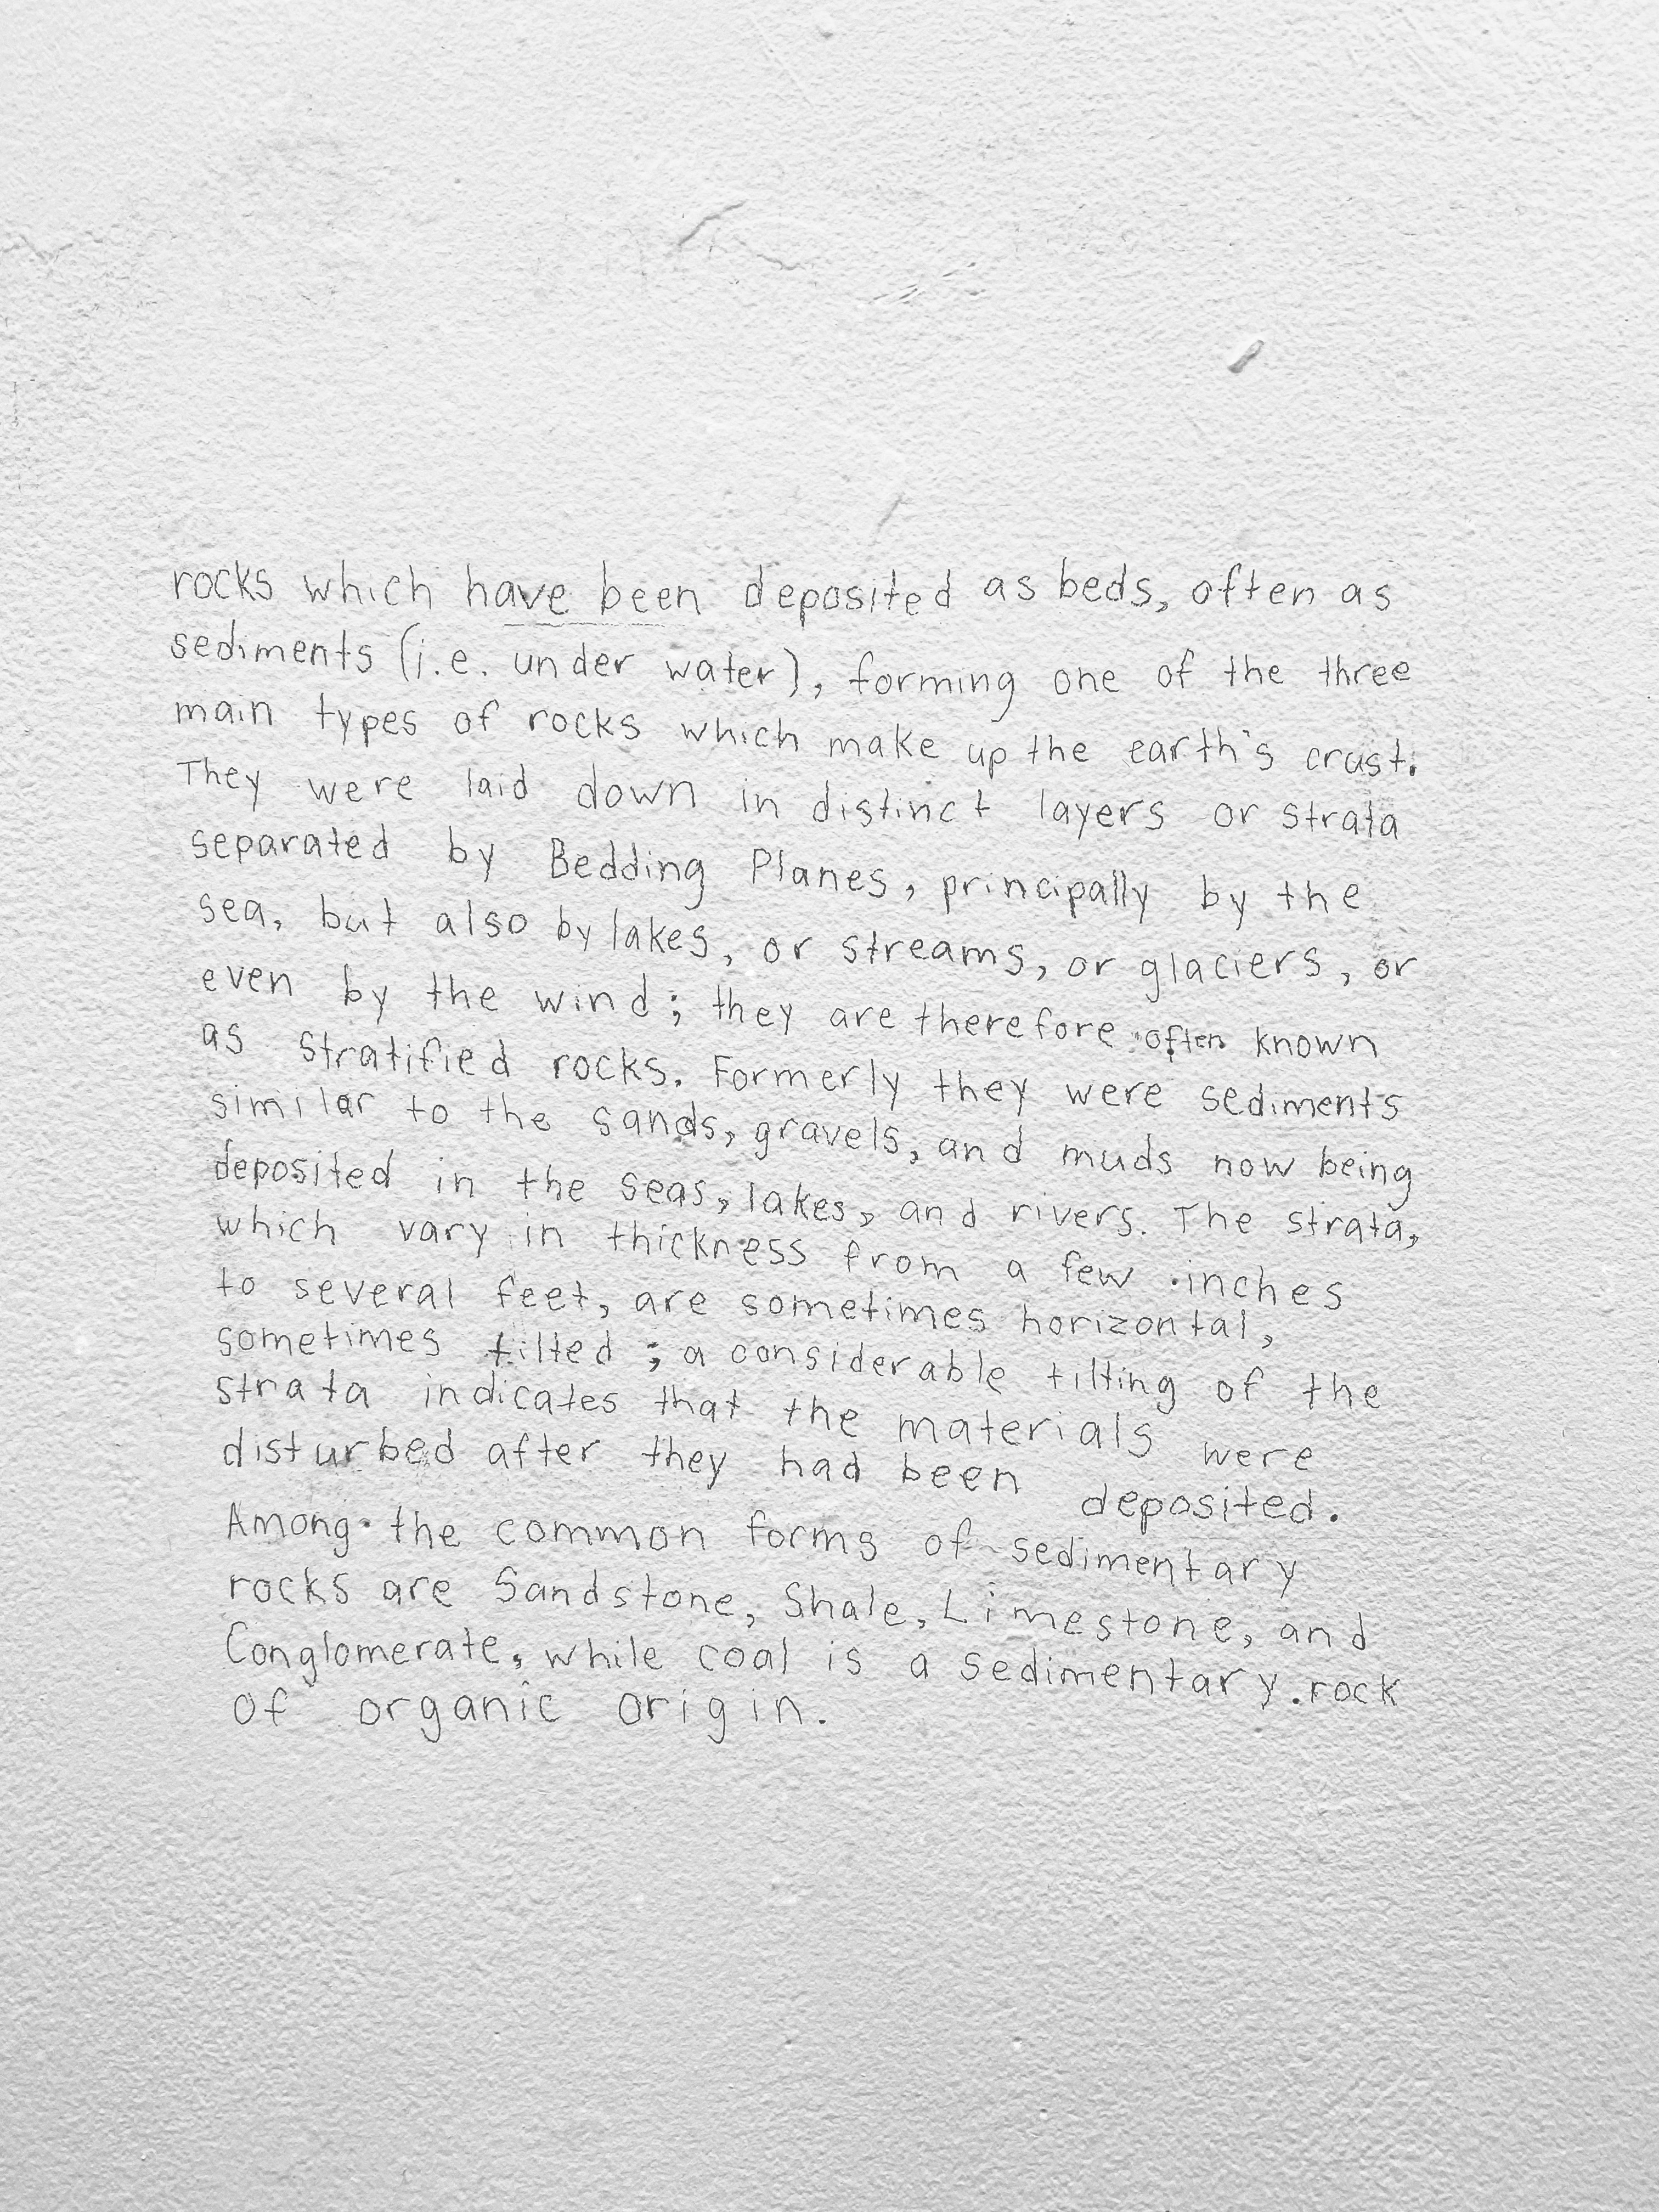 rocks which have been deposited as beds, often as
sediments (i.e. under water), forming one of the three
main types of rocks which make up the earth's crust.
They were laid down in distinct layers or strata
separated by Bedding Planes, principally by the
sea, but also by lakes, or streams, or glaciers, or
even by the wind; they are therefore often known
as stratified rocks. Formerly they were sediments
similar to the sands, gravels, and muds now being
deposited in the seas, lakes, and rivers. The strata,
which vary in thickness from a few inches
to several feet, are sometimes horizontal,
sometimes tilted; a considerable tilting of the
strata indicates that the materials were
disturbed after they had been deposited.
Among the common forms of sedimentary
rocks are Sandstone, Shale, Limestone, and
Conglomerate, while coal is a sedimentary rock
of organic origin.